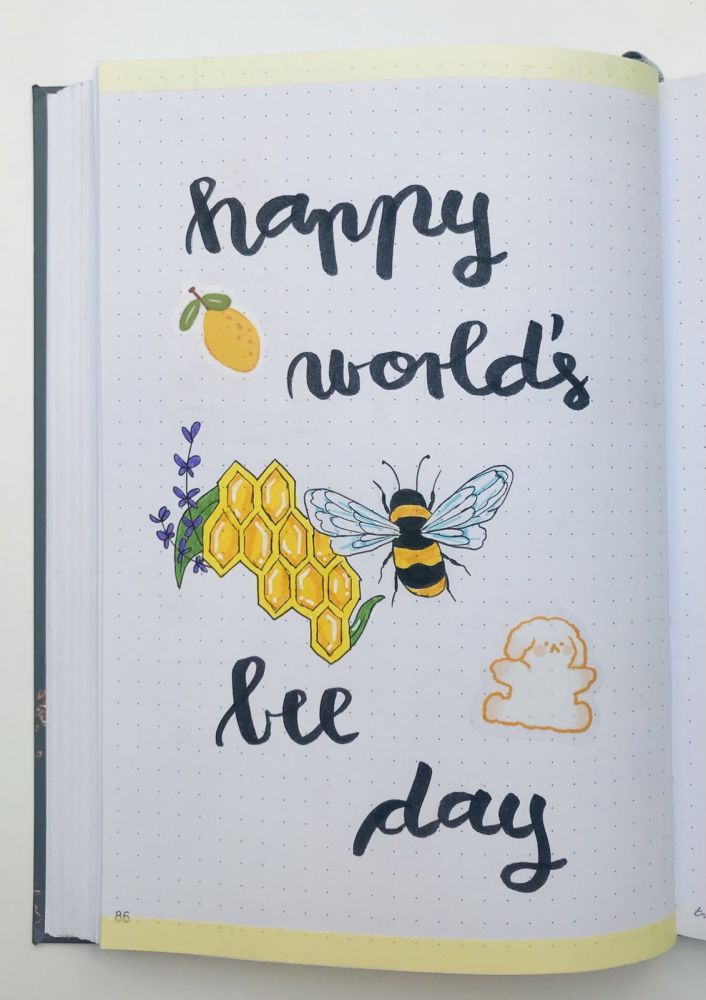 happy
world's
bee
day
86